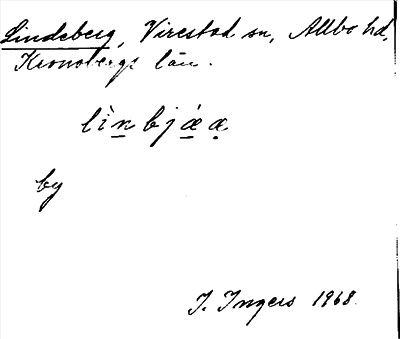 Lindeberg, Virestad sn, Allbo hd,
Kronobergs län.
lìn̲bjǽ̲æ̲
by
I. Ingers 1968.